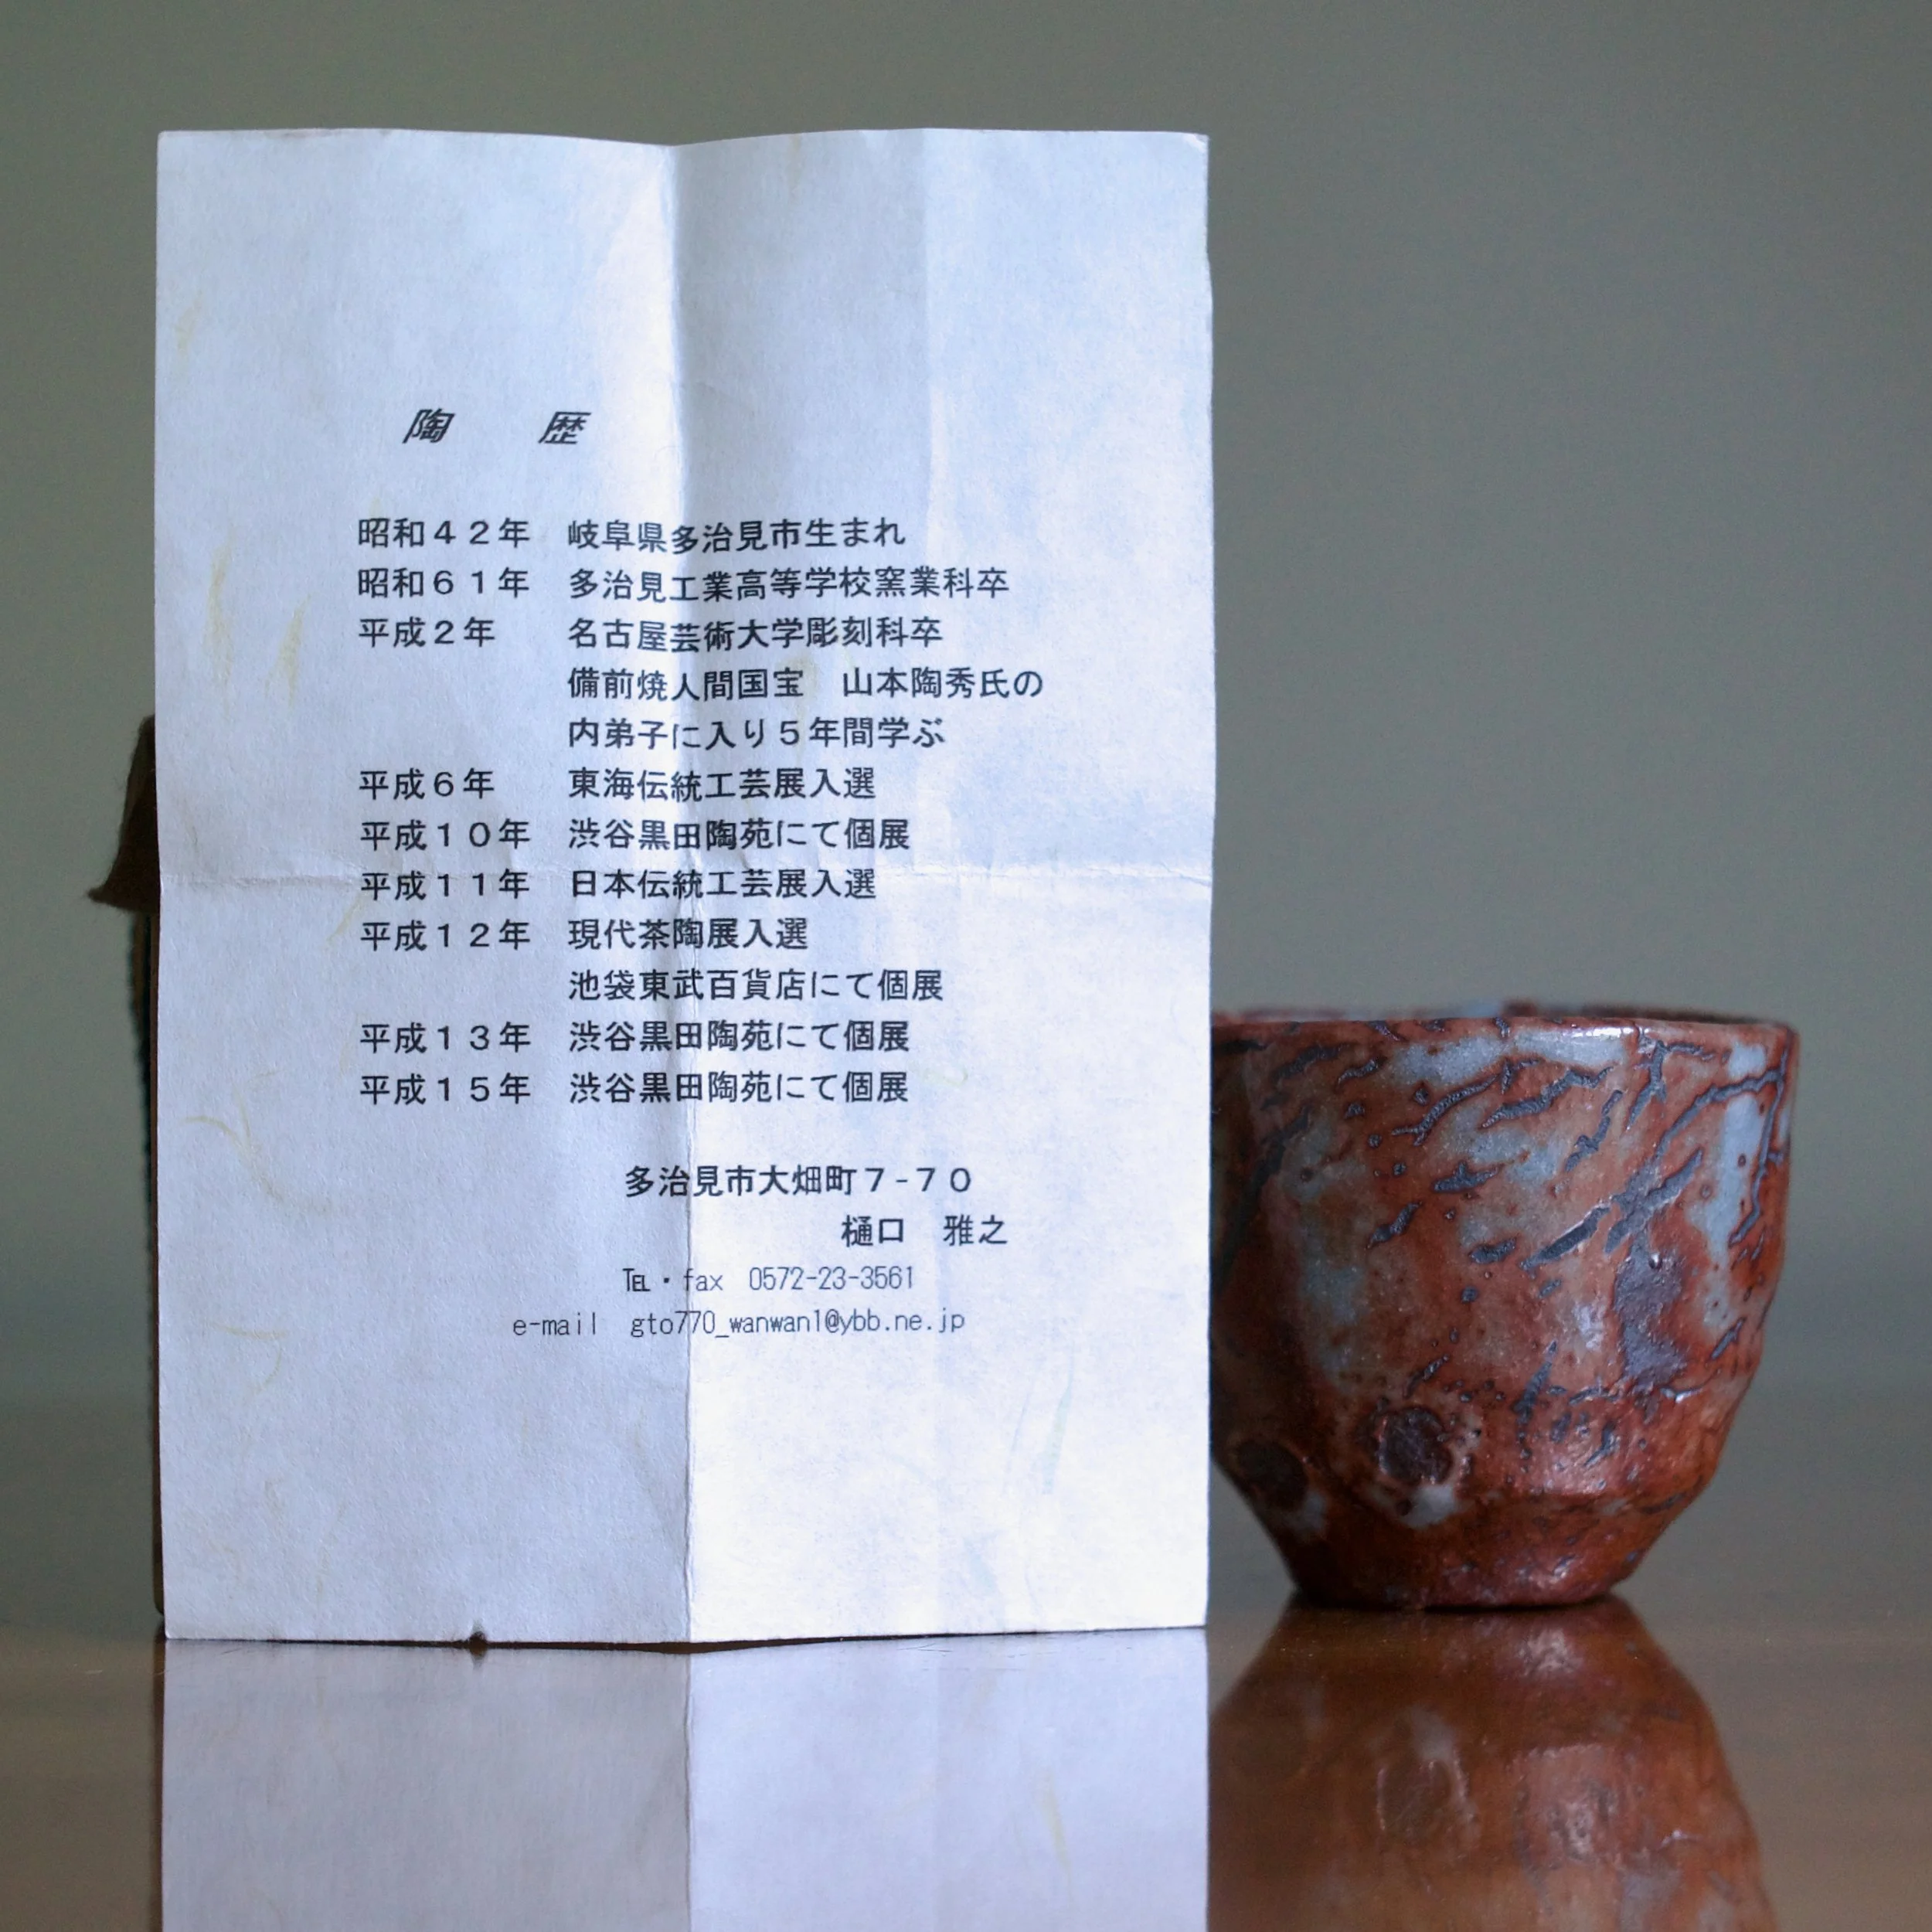 陶　歴
昭和４２年　岐阜県多治見市生まれ
昭和６１年　多治見工業高等学校窯業科卒
平成２年　名古屋芸術大学彫刻科卒
備前焼人間国宝　山本陶秀氏の
内弟子に入り５年間学ぶ
平成６年　東海伝統工芸展入選
平成１０年　渋谷黒田陶苑にて個展
平成１１年　日本伝統工芸展入選
平成１２年　現代茶陶展入選
池袋東武百貨店にて個展
平成１３年　渋谷黒田陶苑にて個展
平成１５年　渋谷黒田陶苑にて個展
多治見市大畑町７-７０
樋口　雅之
℡・fax　0572-23-3561
e-mail　gto770_wanwan1@ybb.ne.jp